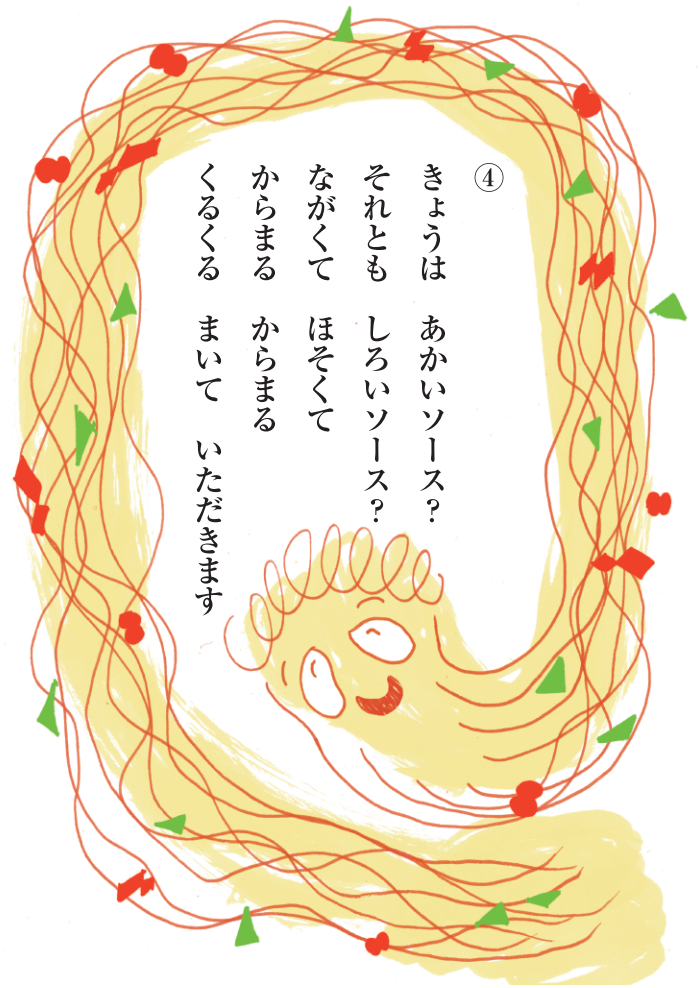 ④
きょうは　あかいソース？
それとも　しろいソース？
ながくて　ほそくて
からまる　からまる
くるくる　まいて　いただきます